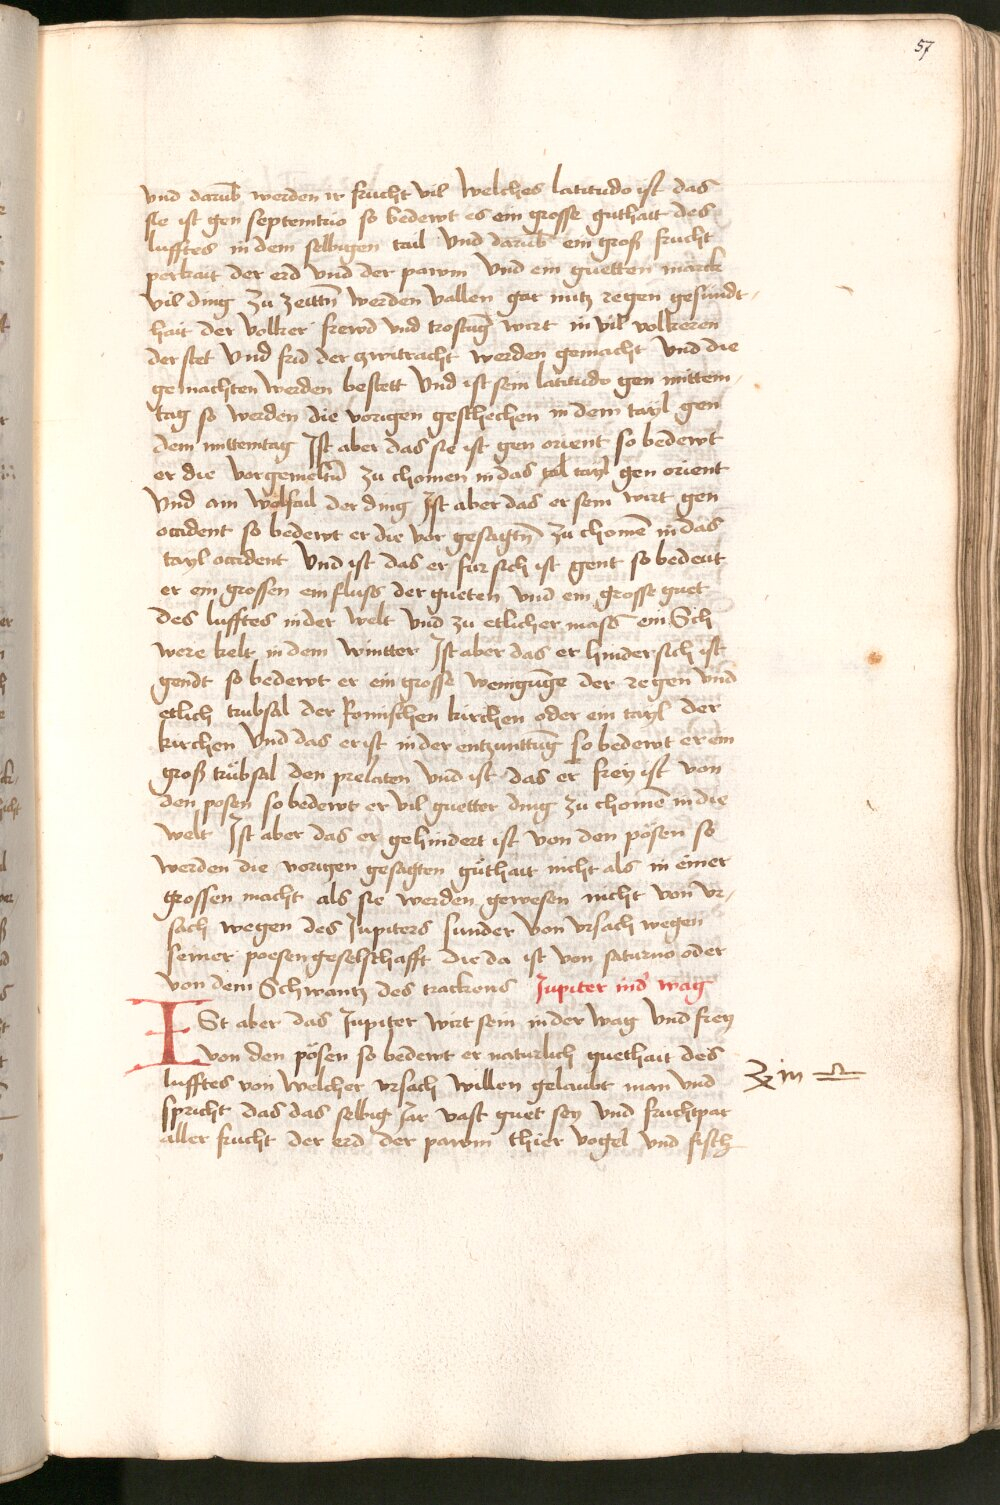 57
vnd darub werden ir frucht vil welches latitudo ist das
sie ist gen septemtrio so bedewt es ein grosse guthait des
lufftes in dem selbigen tail vnd darub ein groß frucht
perkait der erd vnd der pawm vnd ein guetten marck
vil ding zu zeittn werden vallen gar nutz regen gesundt-
hait der volker frewd vnd trostug wirt in vil volkeren
der stet vnd frid der zwitracht werden gemacht vnd die
gemachten werden bestett vnd ist sein latitudo gen mittem-
tag so werden die vorigen geschechen in dem tayl gen
dem mittemtag Ist aber das sie ist gen orient so bedewt
er die vorgemeltn zu chomen in das tal tayl gen orient
vnd am wolfail der ding Ist aber das er sein wirt gen
occident so bedewt er die vor gesagtn zu chome in das
tayl occident vnd ist das er fur sich ist gent so bedeut
er ein grossen ein fluss der gueten vnd ein grosse guet
des lufftes in der welt vnd zu etlicher mass ein Sch
were kelt in dem wintter Ist aber das er hinder sich ist
gendt so bedewt er ein grosse weniguge der regen vnd
etlich trubsal der Romischen kirchen oder ein tayl der
kirchen vnd das er ist in der entzunttug so bedewt er ein
groß trubsal den prelaten vnd ist das er frey ist von
den posen so bedewt er vil guetter ding zu chome in die
welt Ist aber das er gehindert ist von den pösen so
werden die vorigen gesagten guthait nicht als in einer
grossen macht als sie werden gewesen nicht von vr-
sach wegen des Jupiters sunder von vrsach wegen
seiner poesen geselschafft die da ist von saturno oder
von dem Schwantz des trackens Jupiter in d wag
ISt aber das Jupiter wirt sein in der wag vnd frey
von den pösen so bedewt er naturlich guethait des
lufftes von welcher vrsach willen gelaubt man vnd
♃ in ♎
spricht das das selbig Jar vast guet sey vnd fruchtpar
aller frucht der erd der pawm thier vogel vnd fisch